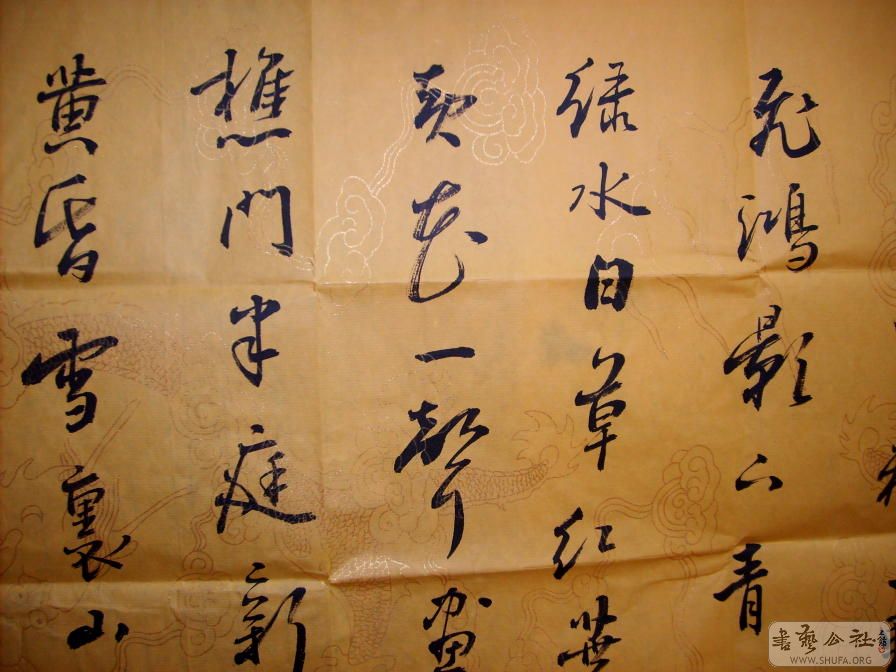 飛鴻影下青
緑水白草紅葉
黄花一聲畫
樵門半庭新
黄昏雪裏山
書藝公社
WWW.SHUFA.ORG